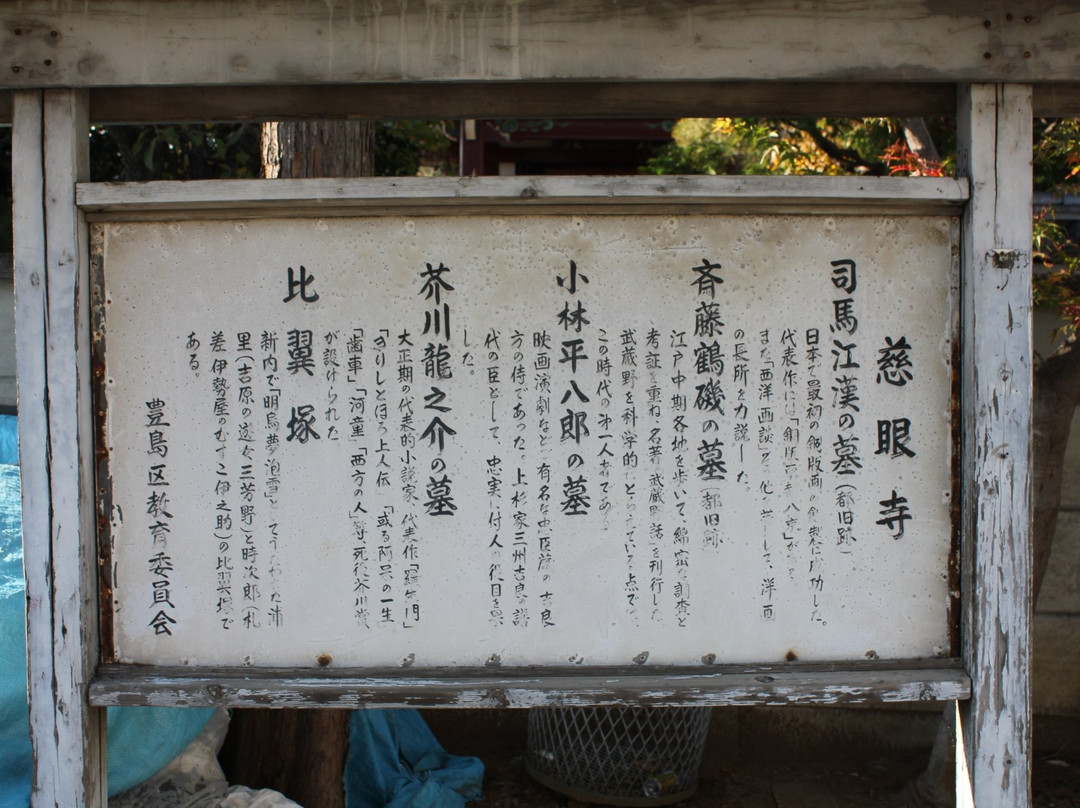 慈眼寺
司馬江漢の墓（都旧跡）
日本で最初の銅版画の創製に成功した。
代表作には
また「西洋画談」 して、洋画
の長所を力説した。
斉藤鶴磯の墓（都旧跡）
江戸中期各地を歩いて、綿密な調査と
考証を重ね、名著「武蔵野話」を刊行した
武蔵野を科学的にとらえている点で、
この時代の第一人者である
小林平八郎の墓
映画演劇などで有名な忠臣蔵の吉良
方の侍であった。上杉家三州吉良の譜
代の臣として、忠実に付人の役目を果
した。
芥川龍之介の墓
大正期の代表的小説家、代表作「羅生門」
「きりしとほろ上人伝」「或る阿呆の一生
「歯車」「河童」「西方の人」等、死後に芥川賞
が設けられた
比翼塚
新内で「明烏夢泡雪」としてうたわれた浦
里（吉原の遊女三芳野）と時次郎（札
差伊勢屋のむすこ伊之助）の比翼塚で
ある。
豊島区教育委員会